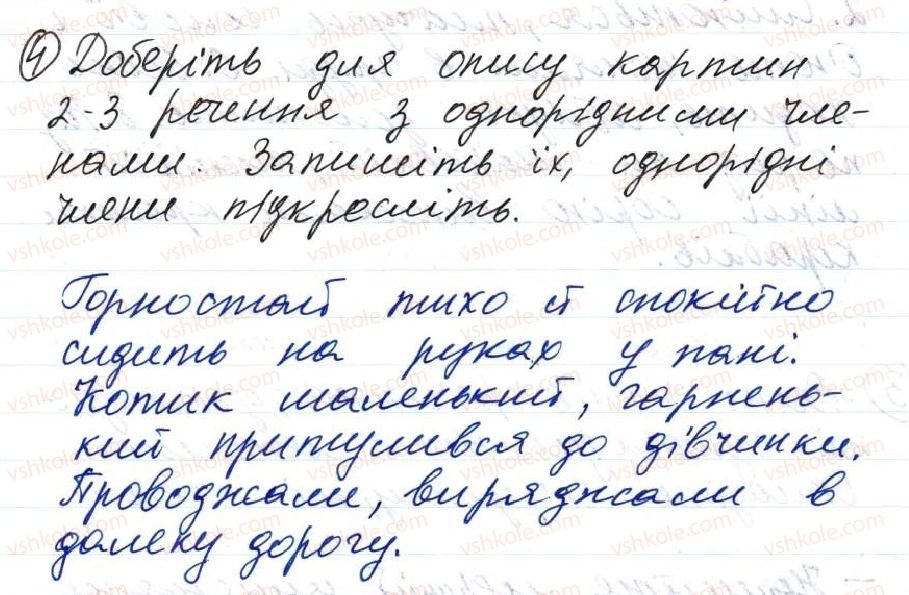 ④ Доберіть для опису картин
2-3 речення з однорідними чле-
нами. Запишіть їх, однорідні
члени підкресліть.
Горностай тихо й спокійно
сидить на руках у пані.
Котик маленький, гарнень-
кий притулився до дівчинки.
Проводжали, виряджали в
далеку дорогу.
vshkole.com